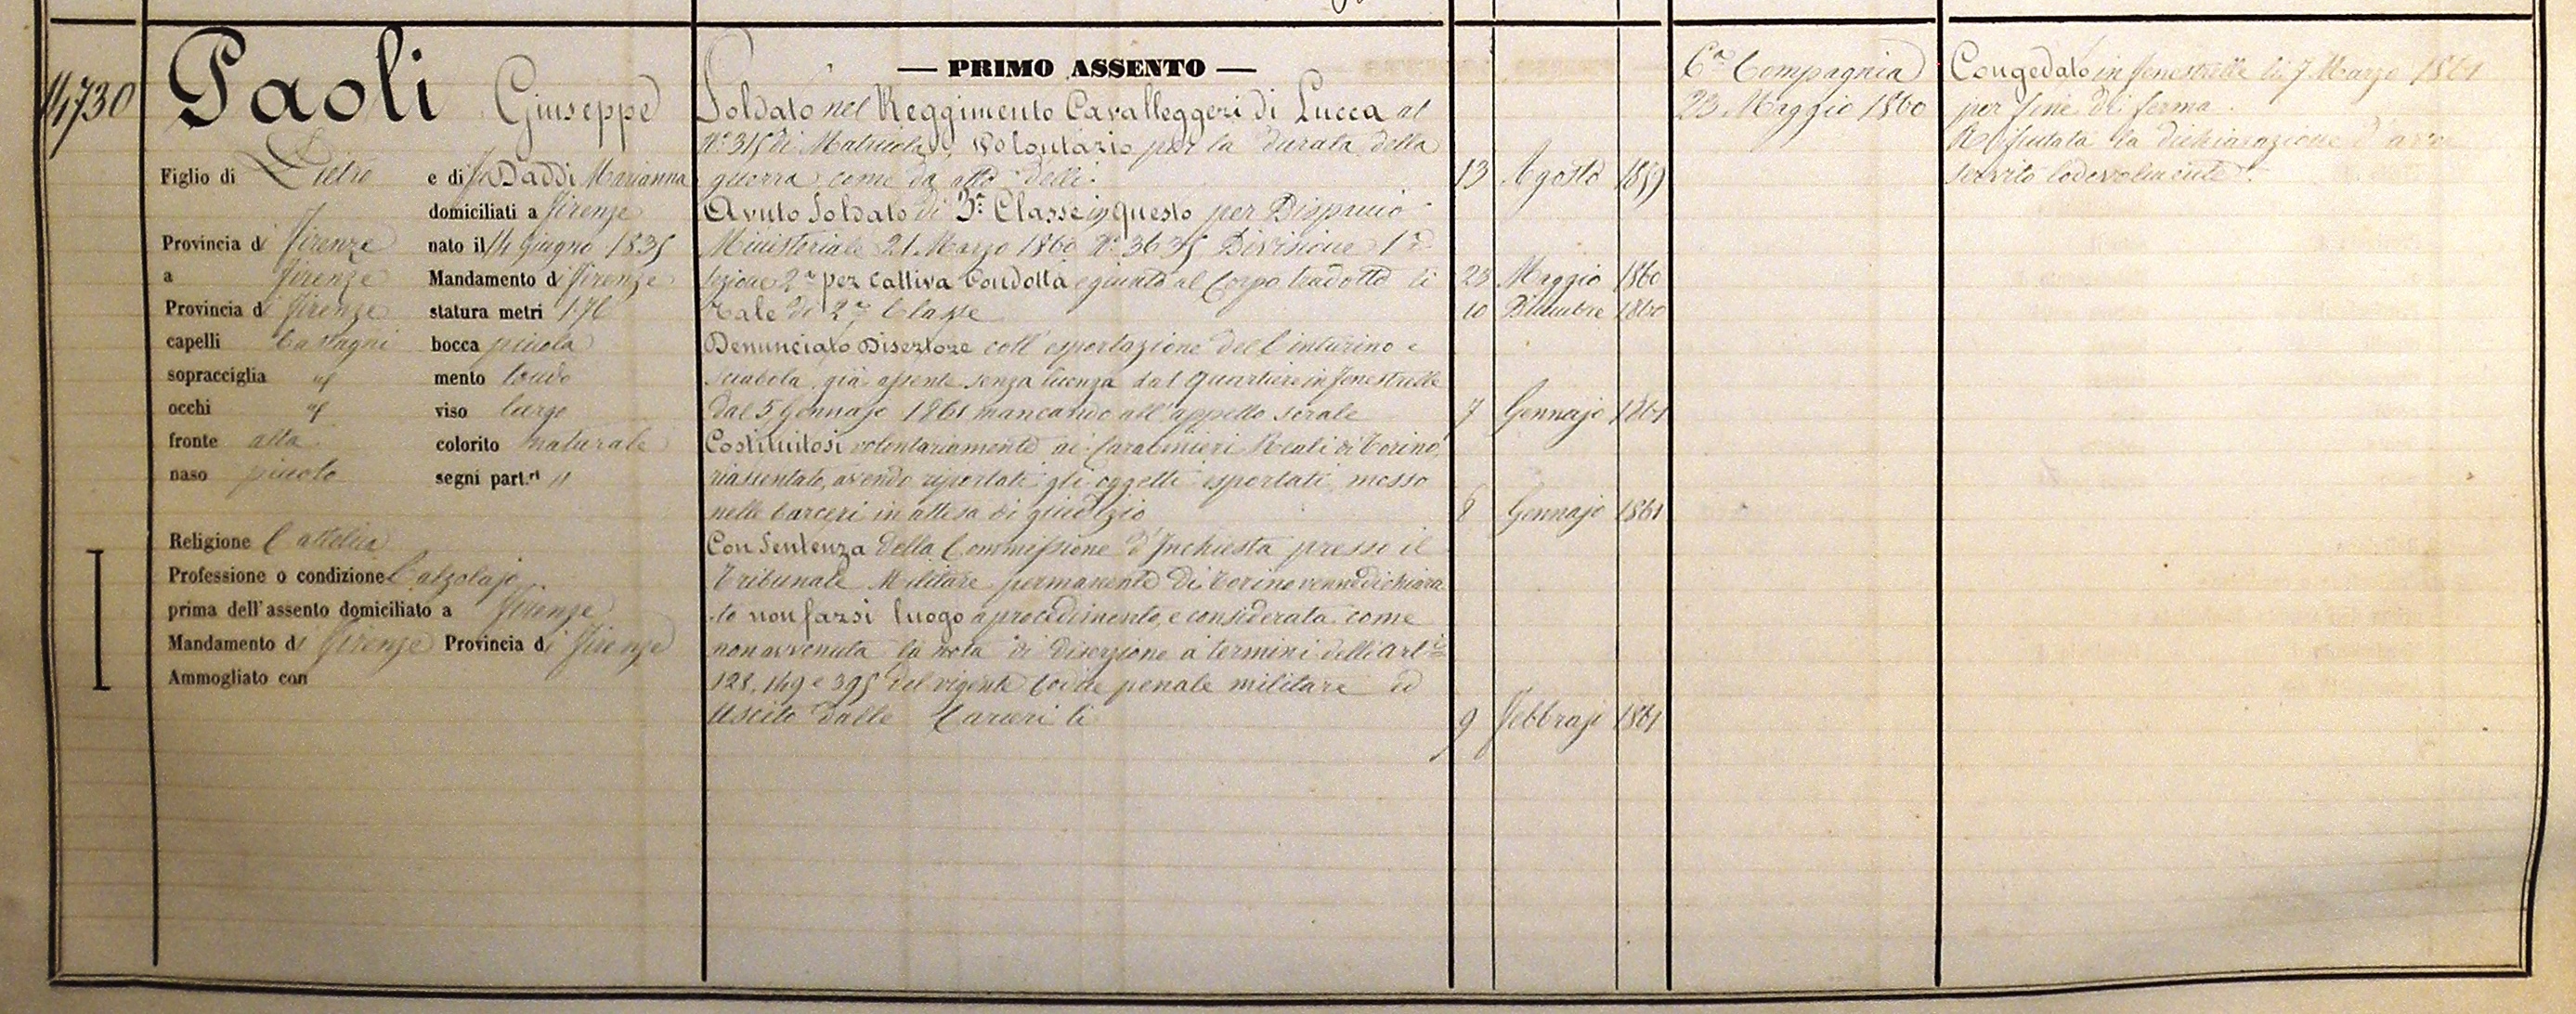 14730
Paoli Giuseppe
Figlio di Pietro e di fu Daddi Marianna
domiciliati a Firenze
Provincia di Firenze nato il 14 Giugno 1835
a Firenze Mandamento di Firenze
Provincia di Firenze statura metri 1.76
capelli Castagni bocca piccola
sopracciglia id mento tondo
occhi id viso largo
fronte alta colorito naturale
naso piccolo segni part.ri //
Religione Cattolica
Professione o condizione Calzolajo
prima dell'assento domiciliato a Firenze
Mandamento di Firenze Provincia di Firenze
Ammogliato con
— PRIMO ASSENTO —
Soldato nel Reggimento Cavalleggeri di Lucca al
N.° 315 di Matricola, Volontario per la durata della
guerra come da atto delli 13 Agosto 1859
Avuto Soldato di 3.a Classe in questo per Dispaccio
Ministeriale 21 Marzo 1860 N.° 3635 Divisione 1.a
Sezione 2.a per cattiva Condotta e giunto al Corpo tradotto li 23 Maggio 1860
Tale di 2.a Classe 10 Dicembre 1860
Denunciato Disertore coll'esportazione dell'inturino e
sciabola, già assente senza licenza dal Quartiere in Fenestrelle
dal 5 Gennajo 1861 mancando all'appello serale 7 Gennajo 1861
Costituitosi volontariamente ai Carabinieri Reali di Torino,
riassentato, avendo riportati gli oggetti esportati, messo
nelle Carceri in attesa di giudizio 8 Gennajo 1861
Con Sentenza della Commissione d'Inchiesta presso il
Tribunale Militare permanente di Torino venne dichiara
-to non farsi luogo a procedimento, e considerata come
non avvenuta la nota di diserzione a termini delli Art.i
128, 149 e 395 del vigente Codice penale militare ed
Uscito dalle Carceri li 9 Febbrajo 1861
6.a Compagnia
23 Maggio 1860
Congedato in Fenestrelle li 7 Marzo 1861
per fine di ferma.
Rifiutata la dichiarazione d'aver
servito lodevolmente.